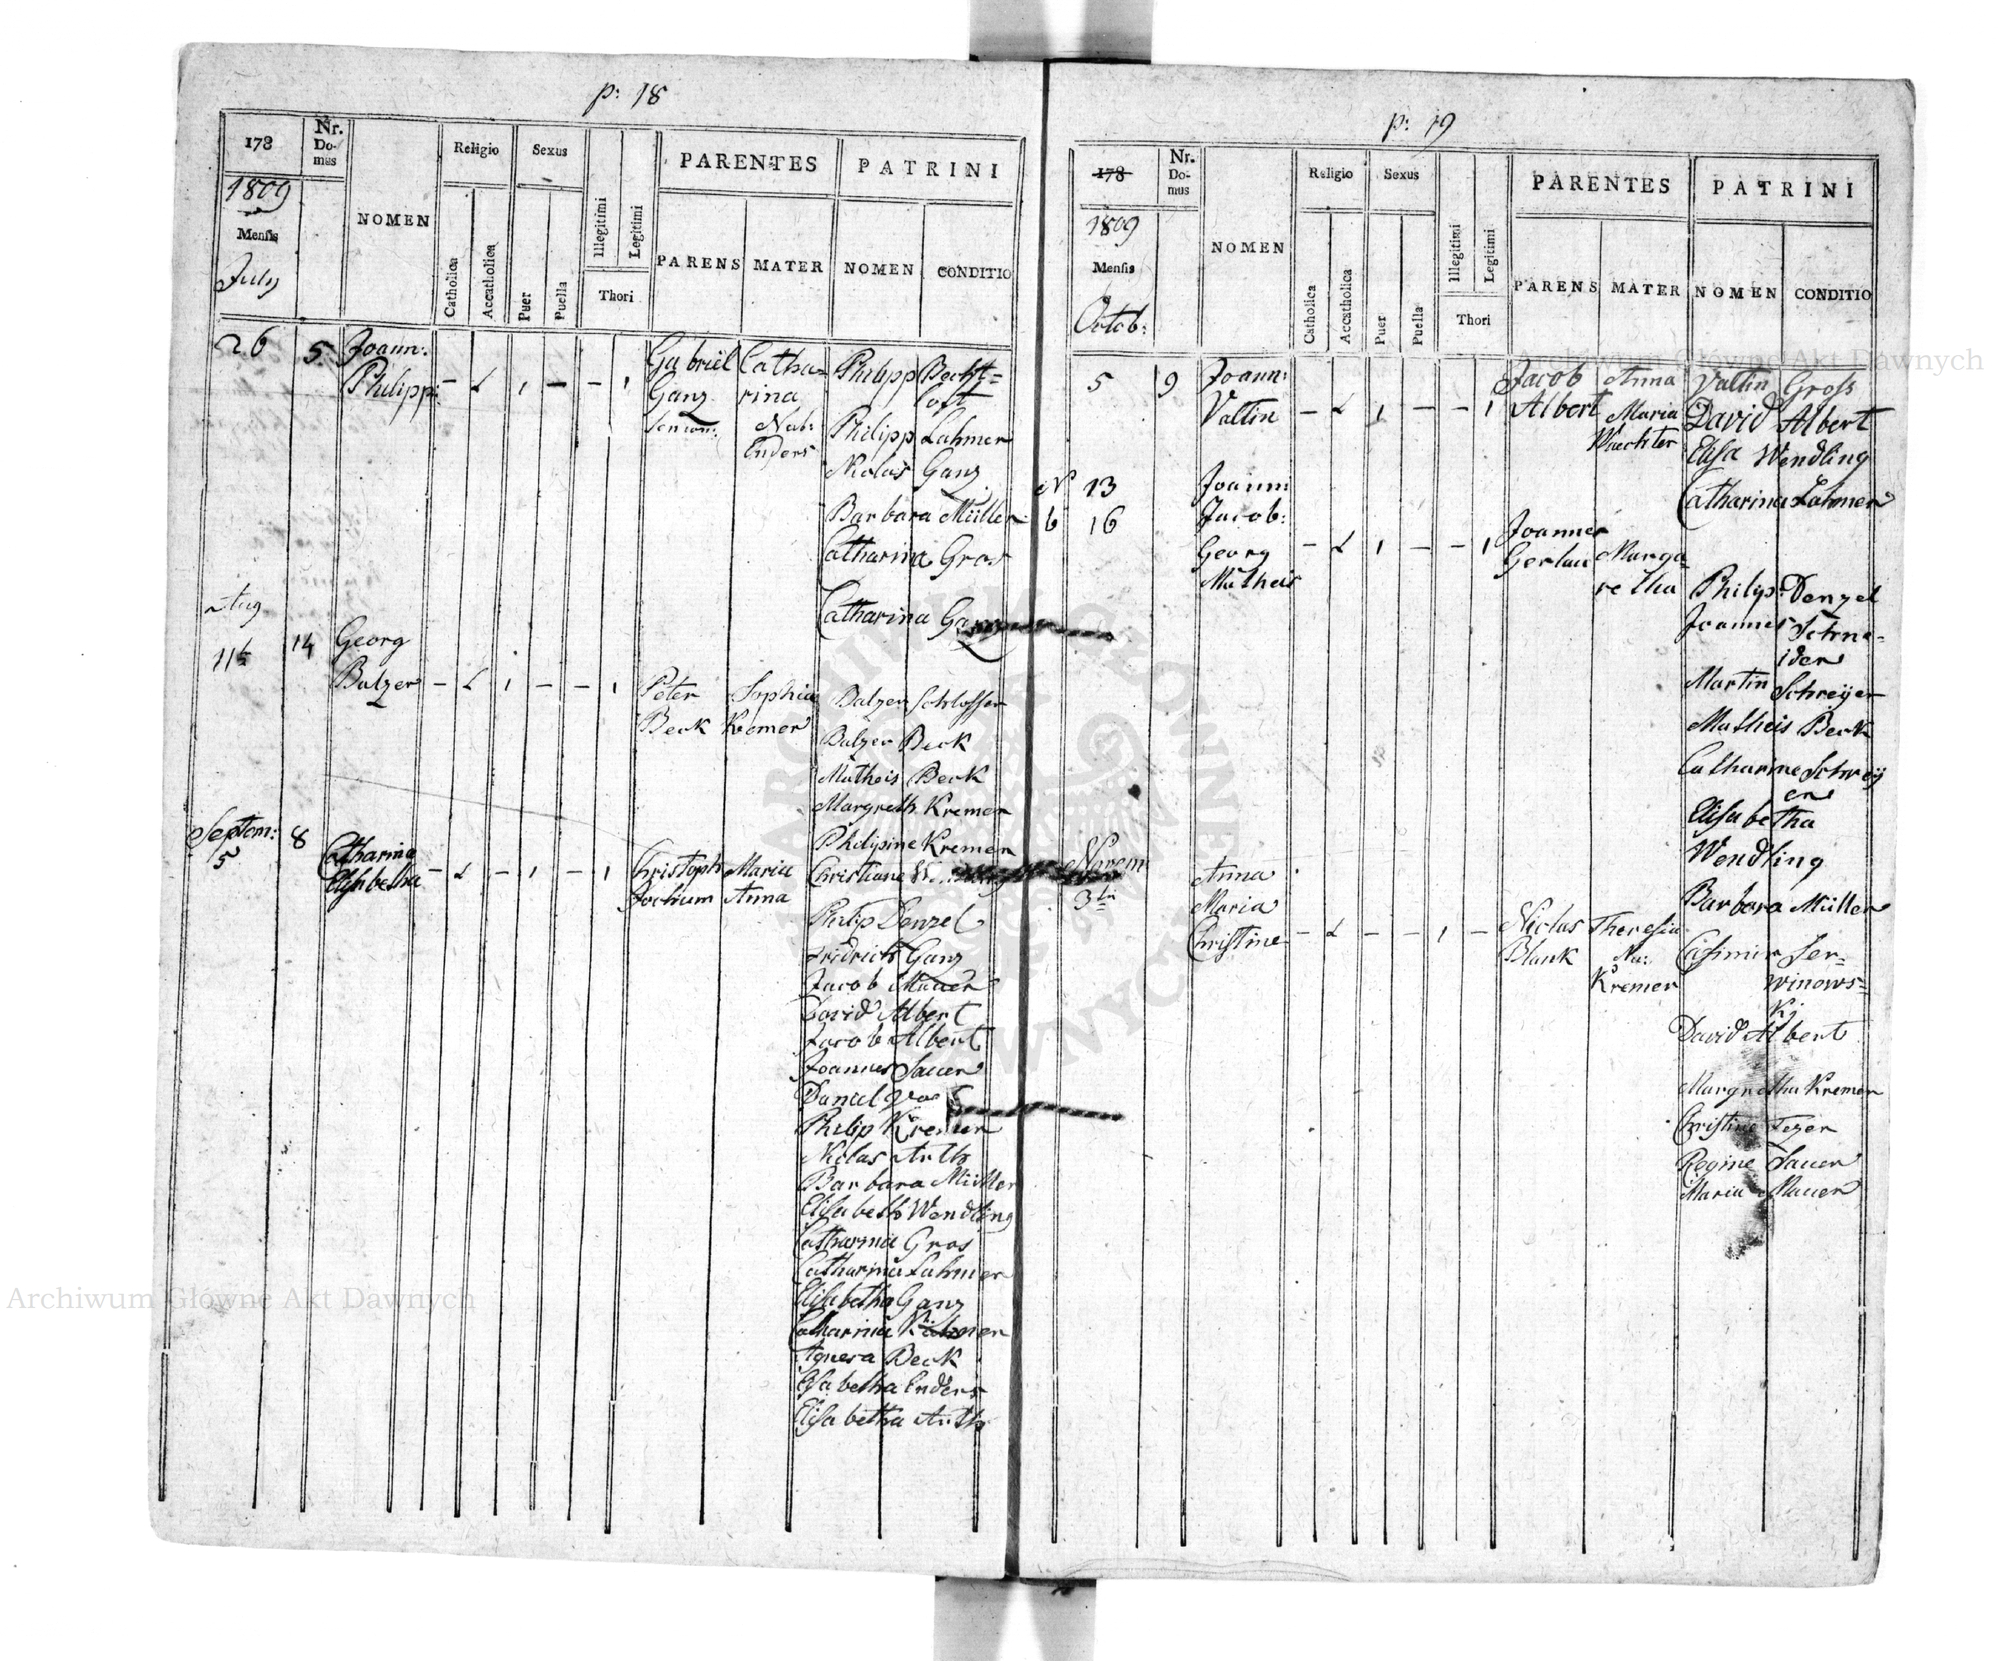 p: 18
178
Nr. Domus
NOMEN
Religio
Sexus
Illegitimi
Legitimi
PARENTES
PATRINI
1809
Mensis
July
Catholica
Accatholica
Puer
Puella
Thori
PARENS
MATER
NOMEN
CONDITIO
26 5. Joann: Gabriel Catha= Philipp Becht=
Philipp: - 1 - - 1 Ganz rina
senior: Nat: Philipp Lahmer
Enders
Nicolas Ganz
Barbara Müller
Catharina Gros
Catharina Ganz
Aug
11t 14 Georg
Balzer - 1 - - 1 Peter Sophia Balzer Schlosser
Beck Kremer Balzer Beck
Matheis Beck
Margreth Kremer
Septem: 8 Philipine Kremer
5 Catharina Christoph Maria Christiane
Elisabetha - - 1 - 1 Jochum Anna
Philip Denzel
Fridrich Ganz
Jacob Mauer
David Albert
Jacob Albert
Joannes Sauer
Daniel
Philip Kremer
Niclas Arth
Barbara Müller
Elisabeth Wendling
Catharina Gros
Catharina Lahmer
Elisabetha Ganz
Catharina
Agnesa Beck
Elisabetha Enders
Elisabetha Arth
p: 19
178
Nr. Domus
NOMEN
Religio
Sexus
Illegitimi
Legitimi
PARENTES
PATRINI
1809
Mensis
Octob:
Catholica
Accatholica
Puer
Puella
Thori
PARENS
MATER
NOMEN
CONDITIO
5 9 Joann: Jacob Anna Valtin Gross
Valtin - 1 - - 1 Albert Maria David Albert
Waechter Elisa Wendling
N 13 Joann: Catharina Lahmer
b 16 Jacob: Joannes
Georg - 1 - - 1 Gerlau Marga=
Matheis retha Philip: Denzel
Joannes Schne=
ider
Martin Schreyer
Matheis Beck
Catharine Schrey
er
Elisabetha
Wendling
Novem
3tn Anna Barbara Müller
Maria
Christine - - - 1 - Niclas Theresia Casimir Ser=
Blank Na: winows=
Kremer kj
David Albert
Margretha Kremer
Christine Fezer
Regine Sauer
Maria Mauer
Archiwum Główne Akt Dawnych
Archiwum Główne Akt Dawnych
ARCHIWUM GŁÓWNE AKT DAWNYCH